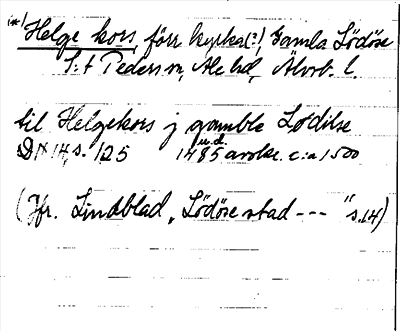 (*) Helge kors, förr kyrka(?), Gamla Lödöse
S:t Peders sn, Ale hd, Älvsb. l.
til Helgekors j gamble Lödilse
DN 14, s. 125 1485 u.d. avskr. c:a 1500
(Jfr. Lindblad, "Lödöse stad --- " s. 14)